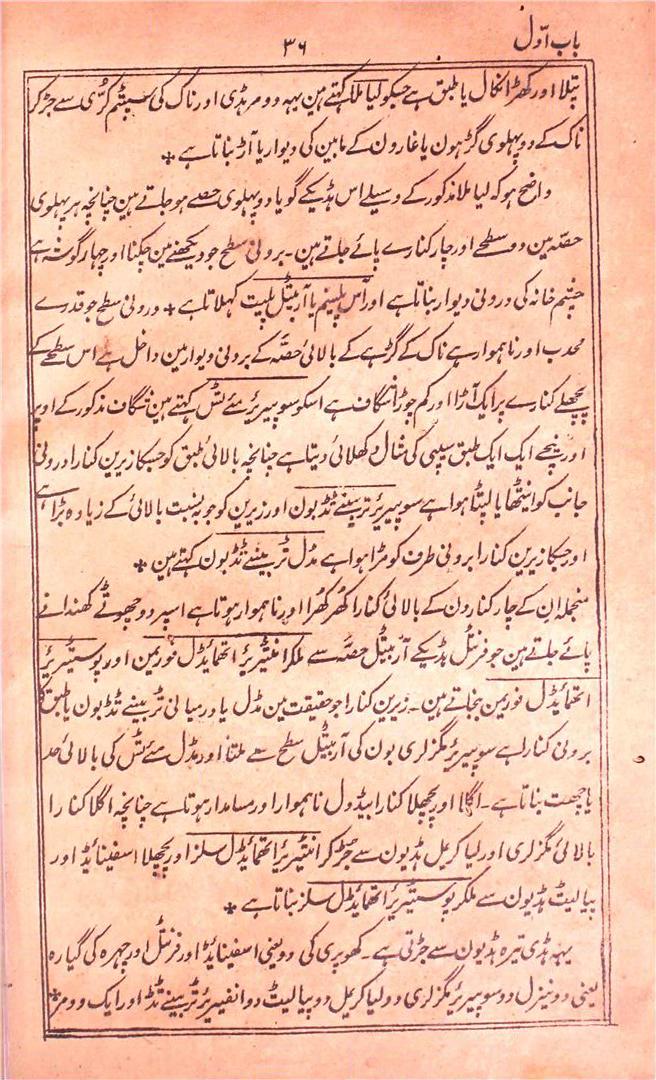 باب اوّل
۳۶
پتلا اور کھڑا نکال یا طبق ہے جسکو لیا ملا کہتے ہین یہہ وومر ہڈی اور ناک کی سیپٹم کرّی سے جڑ کر
ناک کے دو پہلوی گڑہون یا غارون کے مابین کی دیوار یا آڑ بناتا ہے ٭
واضح ہو کہ لیا ملا مذکور کے وسیلے اس ہڈیکے گویا دو پہلوی حصے ہو جاتے ہین چنانچہ ہر پہلوی
حصّہ مین دو سطحے اور چار کنارے پائے جاتے ہین۔ برونی سطح جو دیکھنے مین چکنا اور چہار گوشہ ہے
چشم خانہ کی درونی دیوار بناتا ہے اور آس پلینم یا آربیٹل پلیٹ کہلاتا ہے ٭ درونی سطح جو قدرے
محدب اور ناہموار ہے ناک کے گڑہے کے بالائی حصّہ کے برونی دیوار مین داخل ہے اس سطحے کے
پچھلے کنارے پر ایک آڑا اور کم چوڑا شگاف ہے اسکو سوپیریئر مے ئٹس کہتے ہین شگاف مذکور کے اوپر
اور نیچے ایک ایک طبق سیپی کی مثال دکھلائی دیتا ہے چنانچہ بالائی طبق کو جسکا زیرین کنارا درونی
جانب کو اینٹھا یا لپٹا ہوا ہے سوپیریئر ٹربینے ٹڈ بون اور زیرین کو جو بہ نسبت بالائی کے زیادہ بڑا ہے
اور جسکا زیرین کنارا برونی طرف کو مڑا ہوا ہے مڈل ٹربینے ٹڈ بون کہتے ہین ٭
منجملہ ان کے چار کنارون کے بالائی کنارا کھُر کھُرا اور ناہموار ہوتا ہے اسپر دو چھوٹے کھندانے
پائے جاتے ہین جو فرنٹل ہڈیکے آربیٹل حصّہ سے ملکر انٹیریئر اتھمائیڈل فورمین اور پوسٹیریئر
اتھمائیڈل فورمین بنجاتے ہین۔ زیرین کنارا جو حقیقت مین مڈل یا درمیانی ٹربینے ٹڈ بون یا طبق کا
برونی کنارا ہے سوپیریئر مگزلری بون کی آربیٹل سطح سے ملتا اور مڈل مے ئٹس کی بالائی حد
یا چھت بناتا ہے۔ اگلا اور پچھلا کنارا بیڈول ناہموار اور مسامدار ہوتا ہے چنانچہ اگلا کنارا
بالائی مگزلری اور لیا کریل ہڈیون سے جڑ کر انٹیریئر اتھمائیڈل سلز اور پچھلا اسفینائیڈ اور
پیالیٹ ہڈیون سے ملکر پوسٹیریئر اتھمائیڈل سلز بناتا ہے ٭
یہہ ہڈی تیرہ ہڈیون سے جڑتی ہے۔ کھوپری کی دو یعنی اسفینائیڈ اور فرنٹل اور چہرہ کی گیارہ
یعنی دو نیزل دو سوپیریئر مگزلری دو لیا کریل دو پیالیٹ دو انفیریئر ٹربینے ٹڈ اور ایک وومر ٭